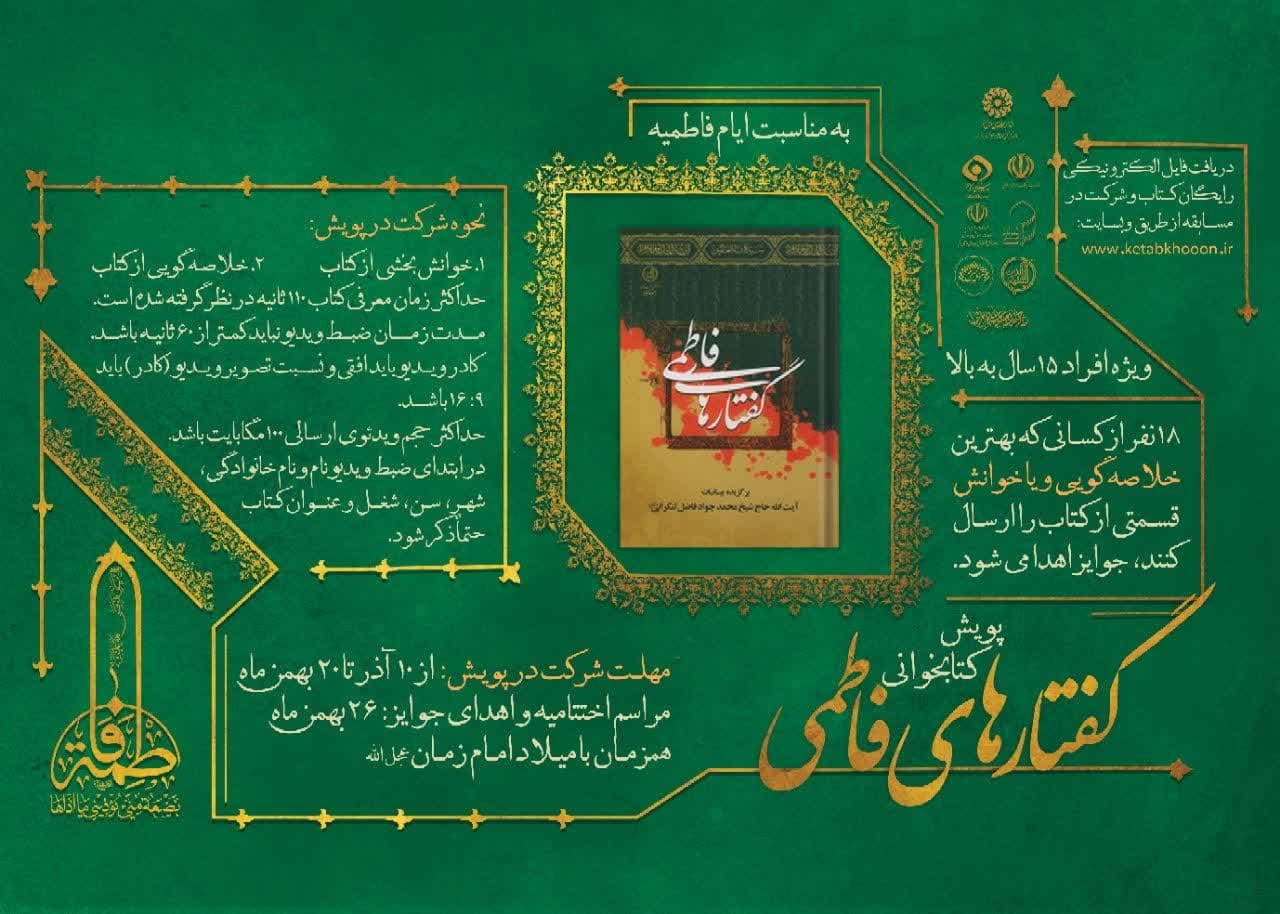 به مناسبت ایام فاطمیه
دریافت فایل الکترونیکی
رایگان کتاب و شرکت در
مسابقه از طریق وبسایت:
www.ketabkhooon.ir
ویژه افراد ۱۵ سال به بالا
۱۸ نفر از کسانی که بهترین
خلاصه گویی و یا خوانش
قسمتی از کتاب را ارسال
کنند، جوایز اهدا می شود.
گفتارهای
فاطمی
برگزیده بیانات
آیت الله حاج شیخ محمد جواد فاضل لنکرانی
پویش
کتابخوانی
گفتارهای فاطمی
نحوه شرکت در پویش:
۱. خوانش بخشی از کتاب ۲. خلاصه گویی از کتاب
حداکثر زمان معرفی کتاب ۱۱۰ ثانیه در نظر گرفته شده است.
مدت زمان ضبط ویدیو نباید کمتر از ۶۰ ثانیه باشد.
کادر ویدیو باید افقی و نسبت تصویر ویدیو (کادر) باید
۱۶:۹ باشد.
حداکثر حجم ویدئوی ارسالی ۱۰۰ مگابایت باشد.
در ابتدای ضبط ویدیو نام و نام خانوادگی،
شهر، سن، شغل و عنوان کتاب
حتما ذکر شود.
مهلت شرکت در پویش: از ۱۰ آذر تا ۲۰ بهمن ماه
مراسم اختتامیه و اهدای جوایز: ۲۶ بهمن ماه
همزمان با میلاد امام زمان عجل الله
فاطمة
بضعة مني يؤذيني ما آذاها